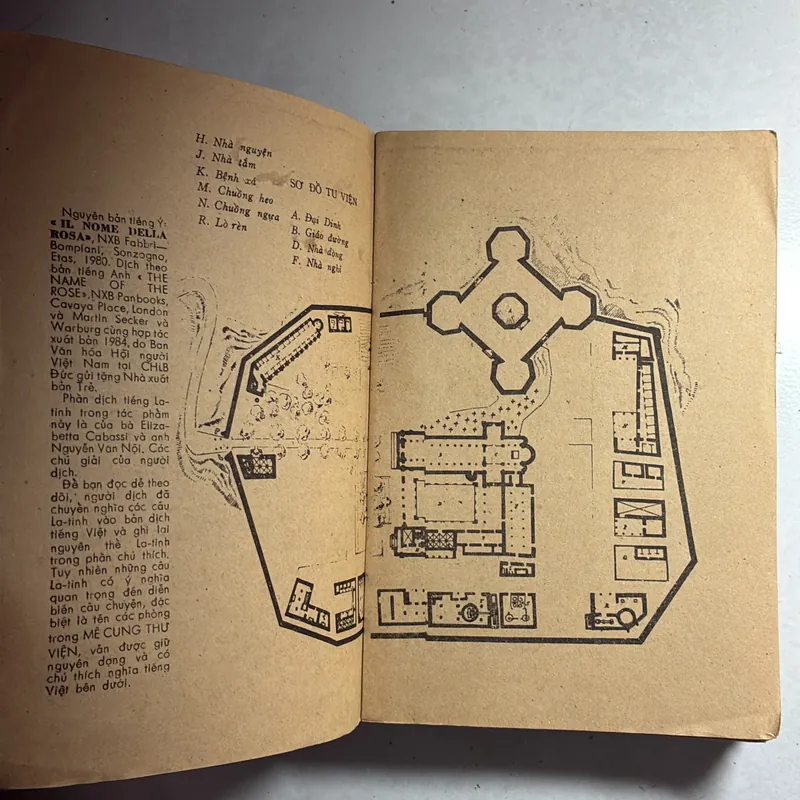 H. Nhà nguyện
J. Nhà tắm
K. Bệnh xá
M. Chuồng heo
N. Chuồng ngựa
R. Lò rèn
SƠ ĐỒ TU VIỆN
A. Đại Dinh
B. Giáo đường
D. Nhà động
F. Nhà nghỉ
Nguyên bản tiếng Ý:
« IL NOME DELLA
ROSA», NXB Fabbri—
Bompiani, Sonzogno,
Etas, 1980. Dịch theo
bản tiếng Anh « THE
NAME OF THE
ROSE», NXB Panbooks,
Cavaya Place, London
và Martin Secker và
Warburg cùng hợp tác
xuất bản 1984, do Ban
Văn hóa Hội người
Việt Nam tại CHLB
Đức gửi tặng Nhà xuất
bản Trẻ.
Phần dịch tiếng La-
tinh trong tác phẩm
này là của bà Eliza-
betta Cabassi và anh
Nguyễn Văn Nội. Các
chú giải của người
dịch.
Để bạn đọc dễ theo
dõi, người dịch đã
chuyển nghĩa các câu
La-tinh vào bản dịch
tiếng Việt và ghi lại
nguyên thể La-tinh
trong phần chú thích.
Tuy nhiên những câu
La-tinh có ý nghĩa
quan trọng đến diễn
biến câu chuyện, đặc
biệt là tên các phòng
trong MÊ CUNG THƯ
VIỆN, vẫn được giữ
nguyên dạng và có
chú thích nghĩa tiếng
Việt bên dưới.